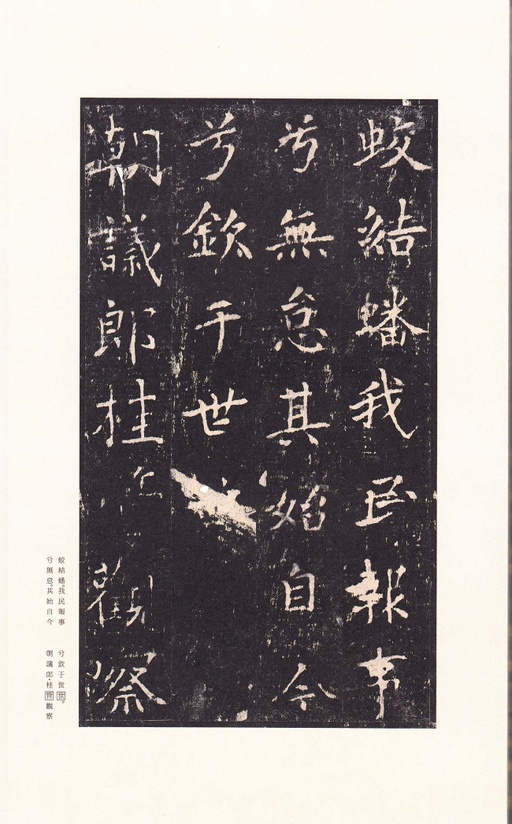 蛟結蟠我民報事
兮無怠其始自今
兮欽于世
朝議郎桂觀察
蛟結蟠。我民報事
兮無怠。其始自今
兮欽于世
朝議郎・桂觀察